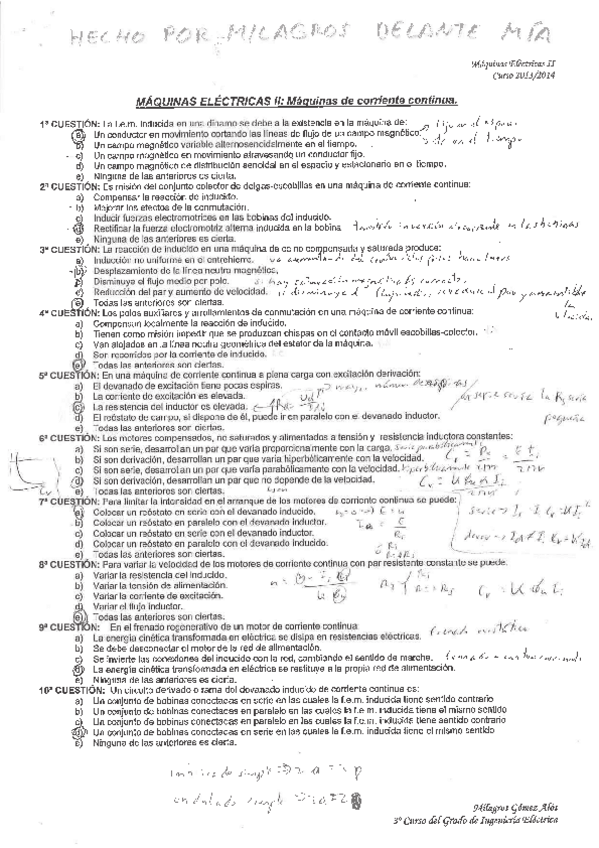 HECHO POR MILAGROS DELANTE MÍA
Máquinas Eléctricas II
Curso 2013/2014
MÁQUINAS ELÉCTRICAS II: Máquinas de corriente continua.
1ª CUESTIÓN: La f.e.m. inducida en una dinamo se debe a la existencia en la máquina de:
a) Un conductor en movimiento cortando las líneas de flujo de un campo magnético.
b) Un campo magnético variable alternosenoidalmente en el tiempo.
c) Un campo magnético en movimiento atravesando un conductor fijo.
d) Un campo magnético de distribución senoidal en el espacio y estacionario en el tiempo.
e) Ninguna de las anteriores es cierta.
2ª CUESTIÓN: Es misión del conjunto colector de delgas-escobillas en una máquina de corriente continua:
a) Compensar la reacción de inducido.
b) Mejorar los efectos de la conmutación.
c) Inducir fuerzas electromotrices en las bobinas del inducido.
d) Rectificar la fuerza electromotriz alterna inducida en la bobina
e) Ninguna de las anteriores es cierta.
3ª CUESTIÓN: La reacción de inducido en una máquina de cc no compensada y saturada produce:
a) Inducción no uniforme en el entrehierro.
b) Desplazamiento de la línea neutra magnética,
c) Disminuye el flujo medio por polo.
c) Reducción del par y aumento de velocidad.
e) Todas las anteriores son ciertas.
4ª CUESTIÓN: Los polos auxiliares y arrollamientos de conmutación en una máquina de corriente continua:
a) Compensan localmente la reacción de inducido.
b) Tienen como misión impedir que se produzcan chispas en el contacto móvil escobillas-colector.
c) Van alojados en la línea neutra geométrica del estator de la máquina.
d) Son recorridos por la corriente de inducido.
e) Todas las anteriores son ciertas.
5ª CUESTIÓN: En una máquina de corriente continua a plena carga con excitación derivación:
a) El devanado de excitación tiene pocas espiras.
b) La corriente de excitación es elevada.
c) La resistencia del inductor es elevada.
d) El reóstato de campo, si dispone de él, puede ir en paralelo con el devanado inductor.
e) Todas las anteriores son ciertas.
6ª CUESTIÓN: Los motores compensados, no saturados y alimentados a tensión y resistencia inductora constantes:
a) Si son serie, desarrollan un par que varía proporcionalmente con la carga.
b) Si son derivación, desarrollan un par que varía hiperbólicamente con la velocidad.
c) Si son serie, desarrollan un par que varía parabólicamente con la velocidad.
d) Si son derivación, desarrollan un par que no depende de la velocidad.
e) Todas las anteriores son ciertas.
7ª CUESTIÓN: Para limitar la intensidad en el arranque de los motores de corriente continua se puede:
a) Colocar un reóstato en serie con el devanado inducido.
b) Colocar un reóstato en paralelo con el devanado inductor.
c) Colocar un reóstato en serie con el devanado inductor.
d) Colocar un reóstato en paralelo con el devanado inducido.
e) Todas las anteriores son ciertas.
8ª CUESTIÓN: Para variar la velocidad de los motores de corriente continua con par resistente constante se puede:
a) Variar la resistencia del inducido.
b) Variar la tensión de alimentación.
c) Variar la corriente de excitación.
d) Variar el flujo inductor.
e) Todas las anteriores son ciertas.
9ª CUESTIÓN: En el frenado regenerativo de un motor de corriente continua:
a) La energía cinética transformada en eléctrica se disipa en resistencias eléctricas.
b) Se debe desconectar el motor de la red de alimentación.
c) Se invierte las conexiones del inducido con la red, cambiando el sentido de marcha.
d) La energía cinética transformada en eléctrica se restituye a la propia red de alimentación.
e) Ninguna de las anteriores es cierta.
10ª CUESTIÓN: Un circuito derivado o rama del devanado inducido de corriente continua es:
a) Un conjunto de bobinas conectadas en serie en las cuales la f.e.m. inducida tiene sentido contrario
b) Un conjunto de bobinas conectadas en paralelo en las cuales la f.e.m. inducida tiene el mismo sentido
c) Un conjunto de bobinas conectadas en paralelo en las cuales la f.e.m. inducida tiene sentido contrario
d) Un conjunto de bobinas conectadas en serie en las cuales la f.e.m. inducida tiene el mismo sentido
e) Ninguna de las anteriores es cierta.
Milagros Gómez Alós
3º Curso del Grado de Ingeniería Eléctrica